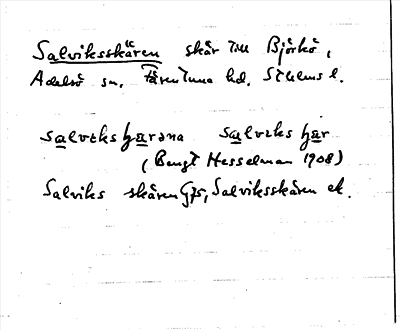 Salviksskären skär till Björkö,
Adelsö sn, Färentuna hd, Sthlms l.
salvikshærəna salviks hær
(Bengt Hesselman 1908)
Salviks skären Gjs, Salviksskären ek.